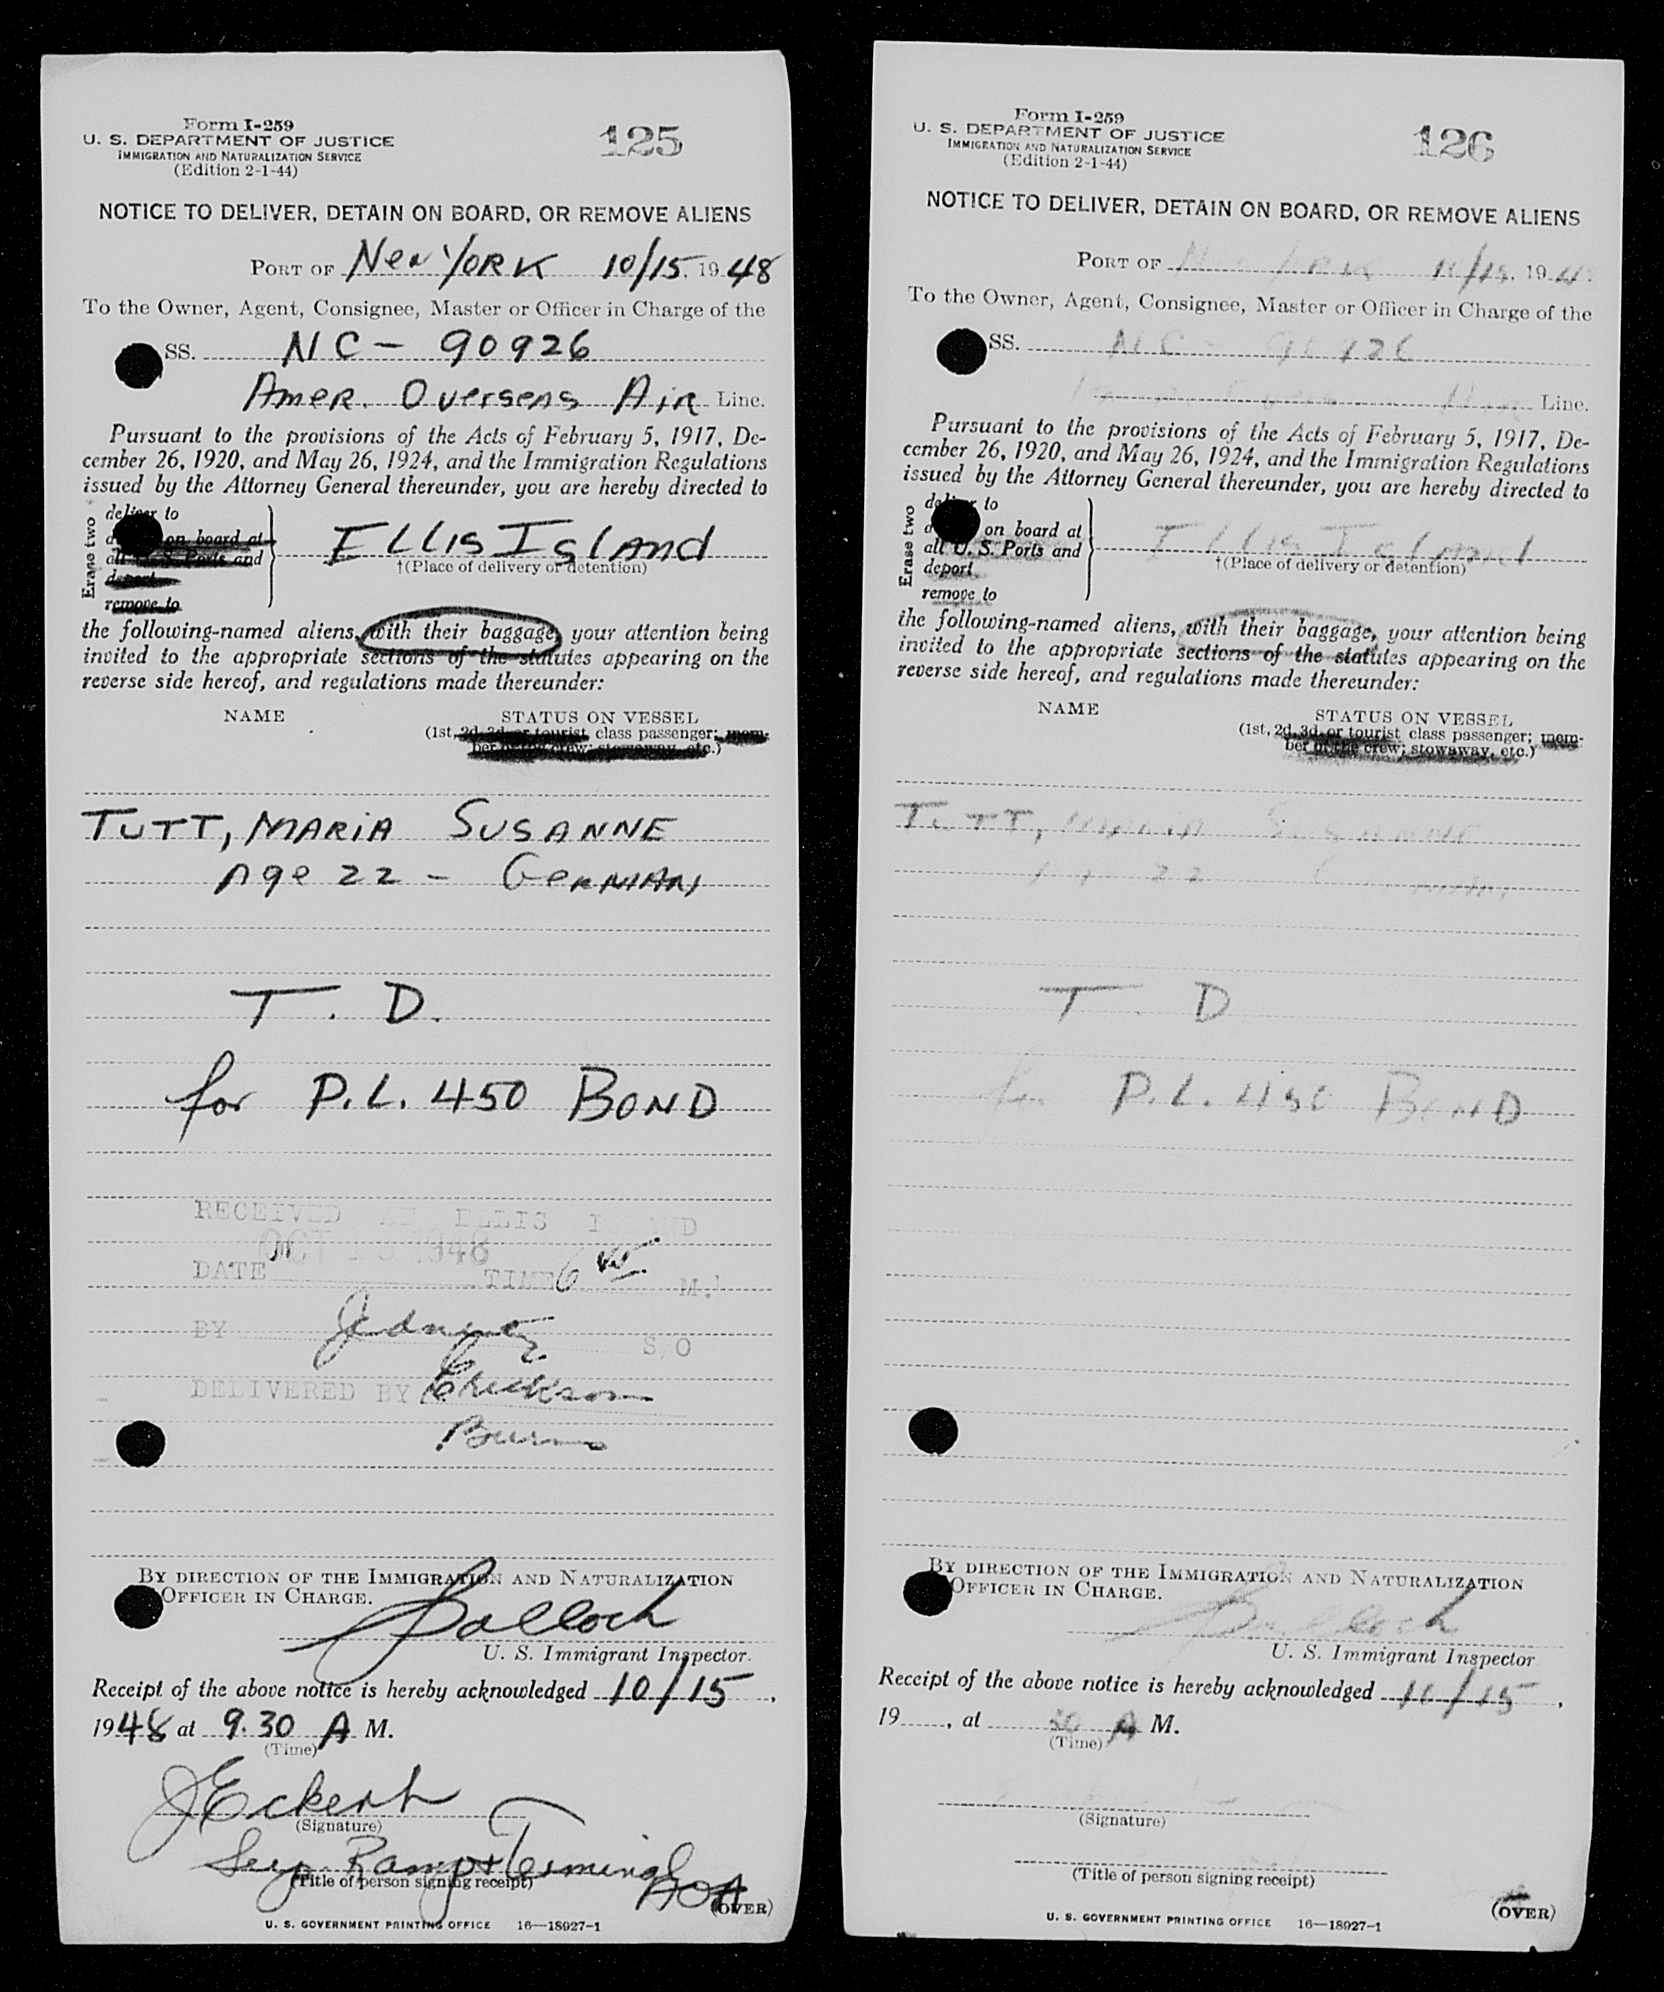 Form I-259
U. S. DEPARTMENT OF JUSTICE
IMMIGRATION AND NATURALIZATION SERVICE
(Edition 2-1-44)
125
NOTICE TO DELIVER, DETAIN ON BOARD, OR REMOVE ALIENS
PORT OF New YORK 10/15, 1948
To the Owner, Agent, Consignee, Master or Officer in Charge of the
SS. NC - 90926
Amer. Overseas Air Line.
Pursuant to the provisions of the Acts of February 5, 1917, De-
cember 26, 1920, and May 26, 1924, and the Immigration Regulations
issued by the Attorney General thereunder, you are hereby directed to
Erase two
deliver to
on board at
all U. S. Ports and
deport
remove to
Ellis Island
†(Place of delivery or detention)
the following-named aliens, with their baggage, your attention being
invited to the appropriate sections of the statutes appearing on the
reverse side hereof, and regulations made thereunder:
NAME STATUS ON VESSEL
(1st, 2d, 3d, or tourist class passenger; mem-
ber of the crew; stowaway, etc.)
TUTT, MARIA SUSANNE
Age 22 - GERMAN
T. D.
for P.L. 450 BOND
RECEIVED ELLIS ISLAND
OCT 1948
DATE TIME 6 M.
BY S O
DELIVERED BY Erickson
Burns
BY DIRECTION OF THE IMMIGRATION AND NATURALIZATION
OFFICER IN CHARGE.
U. S. Immigrant Inspector.
Receipt of the above notice is hereby acknowledged 10/15,
1948 at 9.30 A M.
(Time)
J Eckert
(Signature)
Ramp + Terminal
AOA
(Title of person signing receipt)
(OVER)
U. S. GOVERNMENT PRINTING OFFICE 16—18927-1
Form I-259
U. S. DEPARTMENT OF JUSTICE
IMMIGRATION AND NATURALIZATION SERVICE
(Edition 2-1-44)
126
NOTICE TO DELIVER, DETAIN ON BOARD, OR REMOVE ALIENS
PORT OF YORK 10/15, 194
To the Owner, Agent, Consignee, Master or Officer in Charge of the
SS. NC - 90926
Line.
Pursuant to the provisions of the Acts of February 5, 1917, De-
cember 26, 1920, and May 26, 1924, and the Immigration Regulations
issued by the Attorney General thereunder, you are hereby directed to
Erase two
deliver to
on board at
all U. S. Ports and
deport
remove to
Ellis Island
†(Place of delivery or detention)
the following-named aliens, with their baggage, your attention being
invited to the appropriate sections of the statutes appearing on the
reverse side hereof, and regulations made thereunder:
NAME STATUS ON VESSEL
(1st, 2d, 3d, or tourist class passenger; mem-
ber of the crew; stowaway, etc.)
TUTT, MARIA SUSANNE
22
T. D
for P.L. 450 BOND
BY DIRECTION OF THE IMMIGRATION AND NATURALIZATION
OFFICER IN CHARGE.
U. S. Immigrant Inspector
Receipt of the above notice is hereby acknowledged 10/15,
19 , at 30 A M.
(Time)
(Signature)
(Title of person signing receipt)
(OVER)
U. S. GOVERNMENT PRINTING OFFICE 16—18927-1